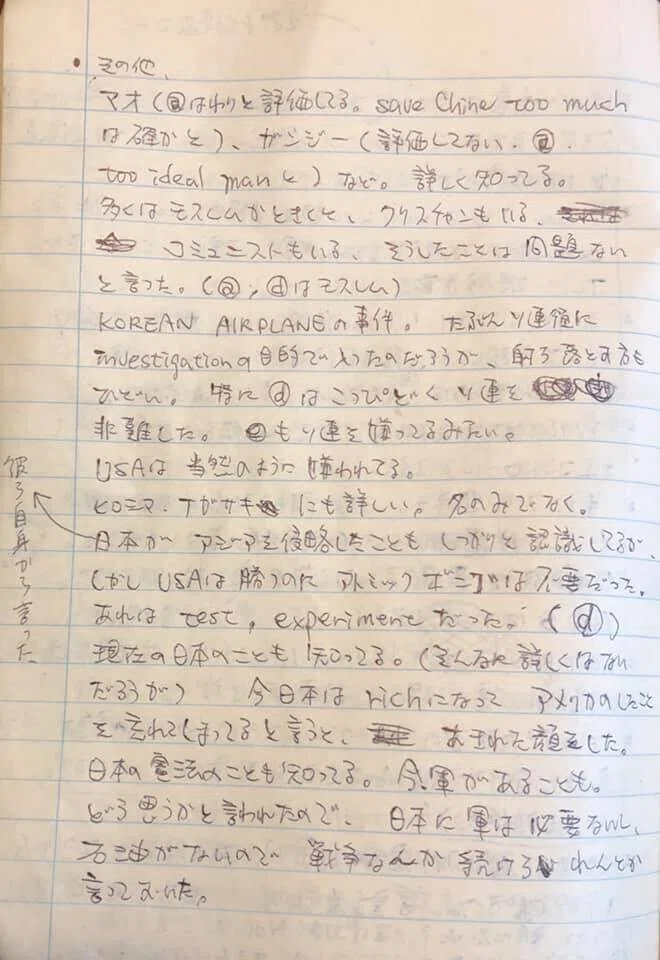 • その他、
マオ(ⓐはわりと評価してる。save Chine too much
は確かと)、ガンジー(評価してない.ⓐ.
too ideal manと)など。詳しく知ってる。
多くはモスレムかときくと、クリスチャンもいる、
コミュニストもいる、そうしたことは問題ない
と言った。(ⓐ,ⓓはモスレム)
KOREAN AIRPLANEの事件。たぶんソ連領に
investigationの目的で入ったのだろうが、射ち落とす方も
ひどい。特にⓓはこっぴどくソ連を
非難した。ⓔもソ連を嫌ってるみたい。
USAは当然のように嫌われてる。
ヒロシマ・ナガサキにも詳しい。名のみでなく。
日本がアジアを侵略したこともしっかりと認識してるが、
しかしUSAは勝つのにアトミックボミングは不要だった。
あれはtest, experimentだった。(ⓓ)
現在の日本のことも知ってる。(そんなに詳しくはない
だろうが) 今日本はrichになってアメリカのしたこと
を忘れてしまってると言うと、あきれた顔をした。
日本の憲法のことも知ってる。今、軍があることも。
どう思うかと言われたので、日本に軍は必要ないし、
石油がないので戦争なんか続けられんとか
言っておいた。
彼ら自身から言った